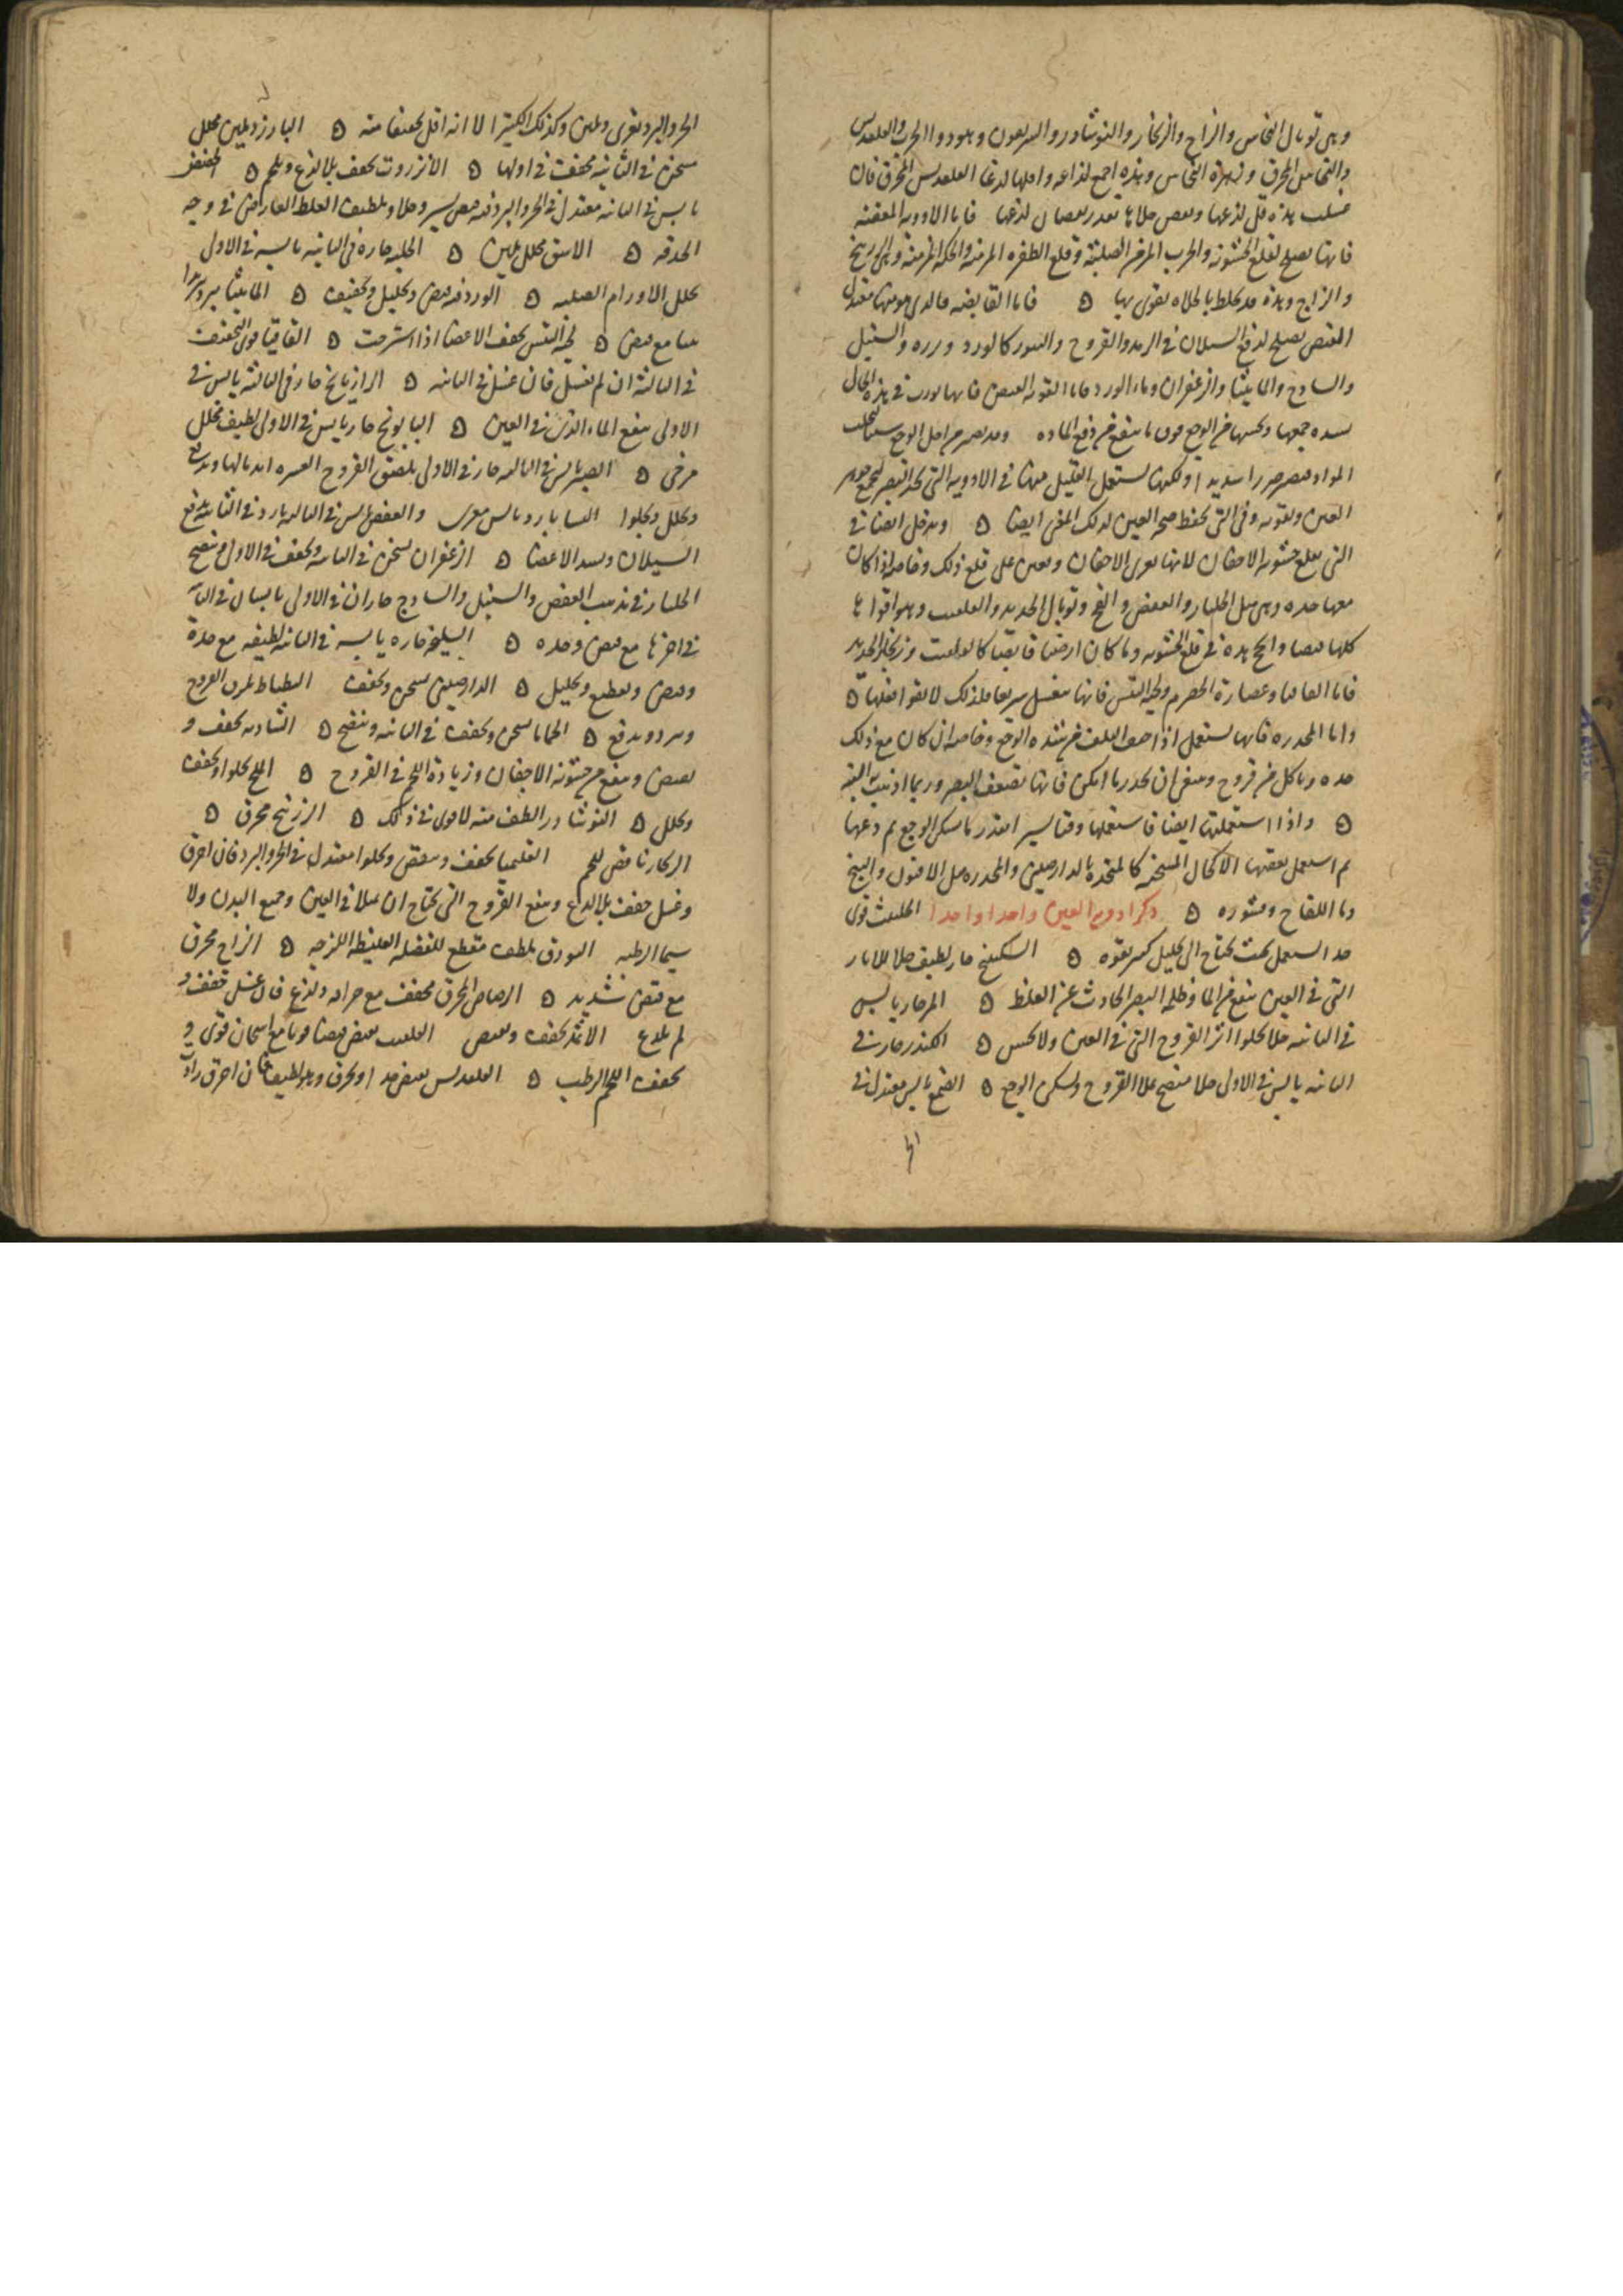 وهى توبال النحاس والزاج والزنجار والنوشادر و
والنحاس المحرق و زهرة النحاس وهذه اجمع لذاعه و اقلها لذعا القلقديس المحرق فان
غسلت هذه قل لذعها ونقص جلاها بقدر نقصان لذعها فاما الادويه المعفنه
فانها تصلح لقلع الخشونه والجرب المزمن الصلبة وقلع الظفره المزمنه والحكه المزمنة وهى الزرنيخ
والزاج وهذه قد تخلط بالجلاه لتقوى بها ۞ فاما القابضه فالذى هو منها معتدل
القبض يصلح لدفع السيلان فى الرمد والقروح والبثور كالورد و بزره والسنبل
والسادج والماميثا والزعفران وماء الورد فاما القويه القبض فانها تورث فى هذه الحال
بشده جمعها وحبسها من الوجع فوق ما ينفع من دفع الماده وقد يصير من اجل الوجع سببا لجلب
المواد فيضر ضررا شديدا ولكنها يستعمل القليل منها فى الادويه التى تحد البصر لتجمع جوهر
العين وتقويه وفى التى تحفظ صحه العين لذلك المعنى ايضا ۞ وتدخل ايضا فى
التى تقلع خشونه الاجفان لانها تقوى الاجفان وتعين على قلع ذلك وخاصه اذا كان
معها حده وهى مثل الجلنار والعفص و توبال الحديد والقلقنت وهو اقواها
كلها قبضا وانجح هذه فى قلع الخشونه وما كان ارضيا قابضا كالقلقنت وزنجار الحديد
فاما القاقيا وعصارة الحصرم ولحية التيس فانها تنغسل سريعا فلذلك لا يقوا فعلها ۞
واما المخدره فانها تستعمل اذا خيف التلف من شده الوجع وخاصه ان كان مع ذلك
حده وتاكل من قروح وينبغى ان يحذر ما امكن فانها تضعف البصر وربما اذهبت به البته
۞ واذا استعملتها ايضا فاستعملها وقتا يسير ا بقدر ما يسكن الوجع ثم دعها
ثم استعمل بعقبها الاكحال المسخنه كالمتخذة بالدارصينى والمخدره مثل الافيون والبنج
وما اللفاح وقشوره ۞ ذكر ادويه العين واحدا واحدا الحلتيث قوى
جدا يستعمل بحيث تحتاج الى تحليل كثير بقوه ۞ السكبينج حار لطيف جلا للاثار
التى فى العين ينفع من الما وظلمه البصر الحادث عن الغلظ ۞ المر حار يابس
فى الثانيه جلا يجلوا اثر القروح التى فى العين ولا يخشن ۞ الكندر حار فى
الثانيه يابس فى الاولى جلا منضج يملا القروح ويسكن الوجع ۞ الصمغ يابس معتدل فى
الحر والبرد يغرى ويلين وكذلك الكثيرا الا انه اقل تجفيفا منه ۞ البارزد يلين محلل
مسخن فى الثانيه مجفف فى اولها ۞ الانزروت يجفف بلا لذع ويلحم ۞ الحضض
يابس فى الثانيه معتدل فى الحر والبرد فيه قبض يسير وجلا ويلطف الغلظ العارض فى وجه
الحدقه ۞ الاشق محلل ملين ۞ الحلبه حاره فى الثانيه يابسه فى الاولى
تحلل الاورام الصلبه ۞ الورد فيه قبض وتحليل وتجفيف ۞ الماميثا يبرد تبريدا
بينا مع قبض ۞ لحية التيس يجفف الاعضا اذا استرخت ۞ القاقيا قوى التجفيف
فى الثالثه ان لم يغسل فان غسل فى الثانيه ۞ الرازيانج حار فى الثالثه يابس فى
الاولى ينفع الماء الذى فى العين ۞ البابونج حار يابس فى الاولى لطيف محلل
مرخى ۞ الصبر يابس فى الثالثه حار فى الاولى يلصق القروح العسره اندمالها ويدفع
ويحلل ويجلوا النشا بارد يابس مغرى والعفص يابس فى الثالثه بارد فى الثانيه يدفع
السيلان ويشد الاعضا ۞ الزعفران يسخن فى الثانيه ويجفف فى الاولى منضج
الجلنار فى مذهب العفص والسنبل والسادج حاران فى الاولى يابسان فى الثانيه
فى اخرها مع قبض وحده ۞ السليخه حاره يابسه فى الثانيه لطيفه مع حدة
وقبض وتقطيع وتحليل ۞ الدارصينى يسخن ويجفف البطباط القروح
ويبرد ويدفع ۞ الحماما يسخن ويجفف فى الثانيه وينضج ۞ الشادنه يجفف و
يقبض وينفع من خشونه الاجفان وزيادة اللحم فى القروح ۞ الملح يجلوا ويجفف
ويحلل ۞ النوشادر الطف منه لا قوى فى ذلك ۞ الزرنيخ محرق ۞
الزنجار ناقص للحم القليميا يجفف ويقبض ويجلوا معتدل فى الحر والبرد فان احرق
وغسل جفف بلا لذع وينفع القروح التى تحتاج ان تملا فى العين وجميع البدن ولا
سيما الرطبه البورق ملطف مقطع للفضله الغليظه اللزجه ۞ الزاج محرق
مع قبض شديد ۞ الرصاص المحرق مجفف مع حراره ولذع فان غسل جفف و
لم يلذع الاثمد يجفف ويقبض القلقنت يقبض قبضا قويا مع اسخان قوى و
يجفف اللحم الرطب ۞ القلقديس يقبض جدا ويحرق وهو لطيف فان احرق زاد